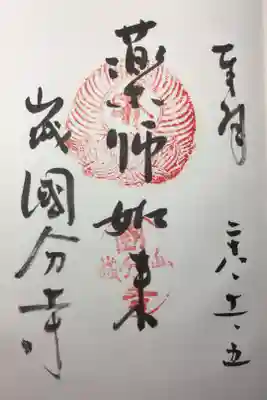 奉拝
二十八、十一、五
薬師如来
國分寺